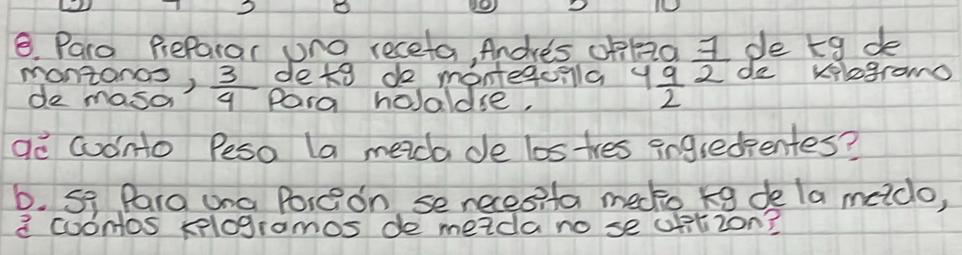 e. Para Preparar una receta, Andrés utiliza 7/2 de kg de
manzanas, 3/4 de kg de mantequilla y 9/2 de kilogramo
de masa Para hojaldre.
a¿ Cuánto Pesa la mezcla de los tres ingredientes?
b. Si Para una Porción se necesita medio kg de la mezcla,
¿ cuántos kilogramos de mezcla no se utilizan?